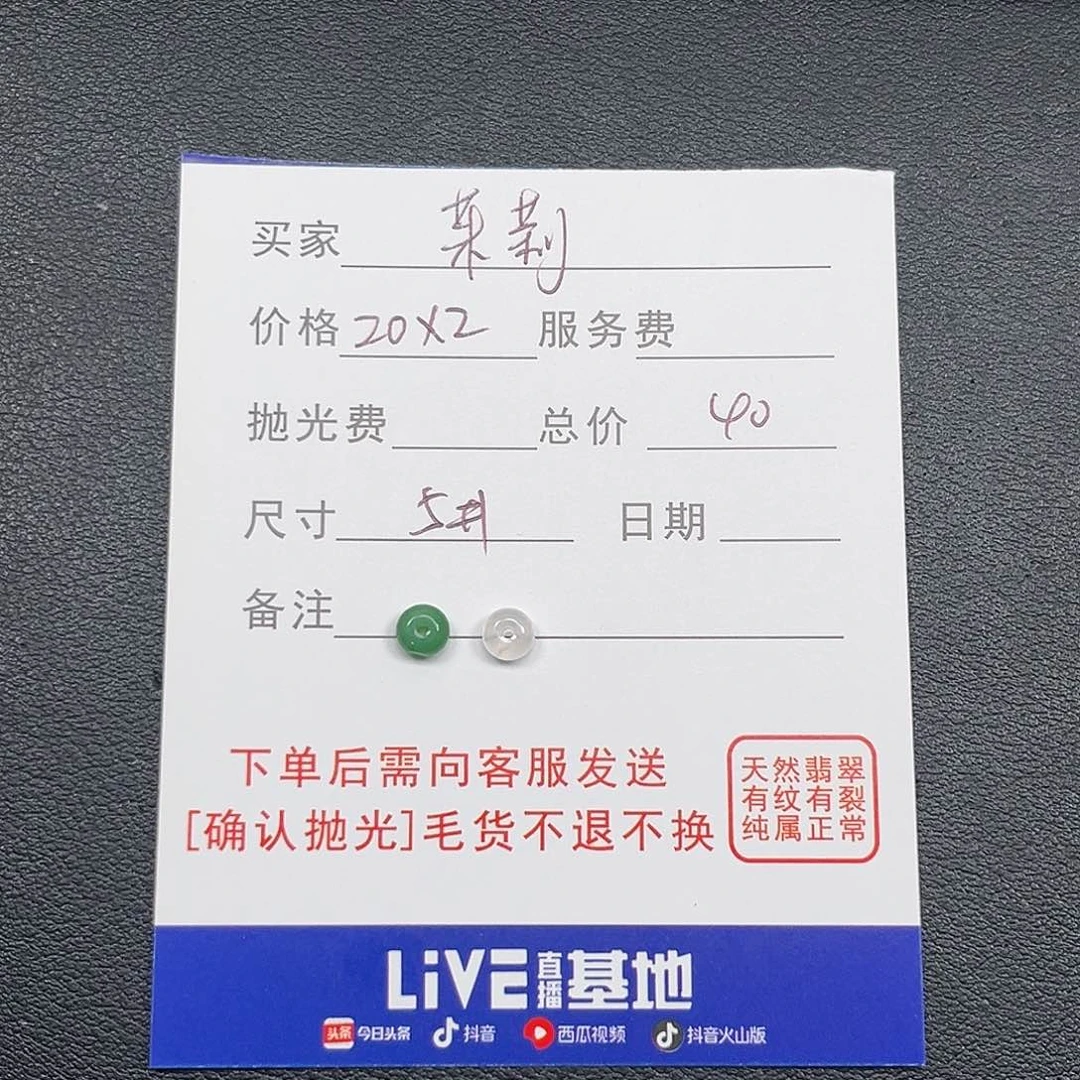 买家 茉莉
价格 20X2 服务费
抛光费 总价 40
尺寸 5#
日期
备注
下单后需向客服发送
[确认抛光]毛货不退不换
天然翡翠
有纹有裂
纯属正常
LiVE直播基地
头条 今日头条 抖音 西瓜视频 抖音火山版